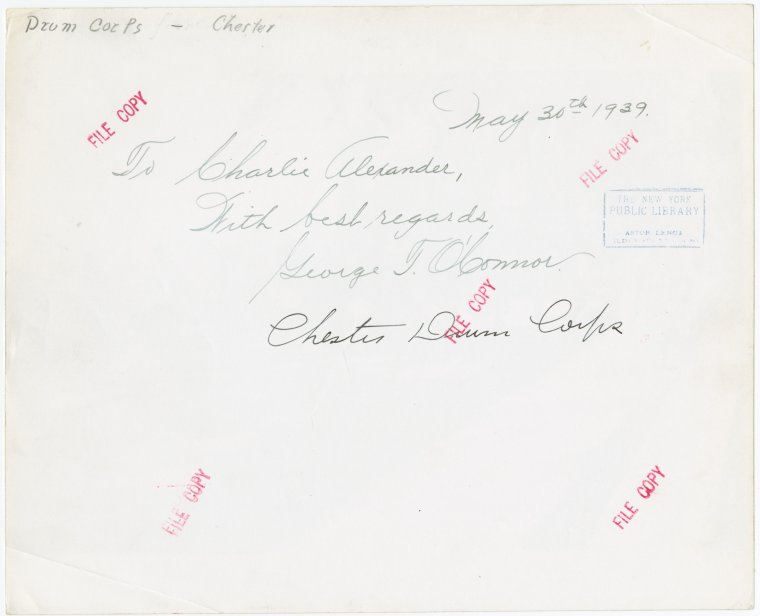 Drum Corps - Chester
May 30th 1939.
FILE COPY
FILE COPY
To Charlie Alexander,
With best regards,
George T. O'Connor.
THE NEW YORK
PUBLIC LIBRARY
ASTOR LENOX
FILE COPY
Chester Drum Corps
FILE COPY
FILE COPY